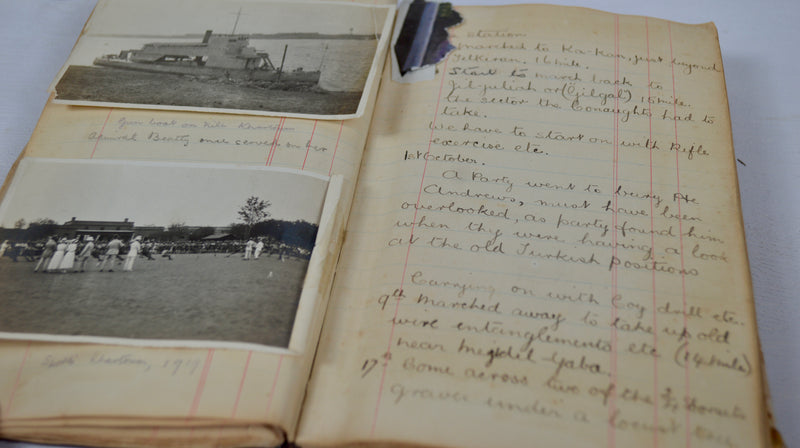 Gun boat on Nile Khartoum
Admiral Beatty once served on her
Sports Khartoum, 1919
station
marched to Ka-Kan, just beyond
Jelkiran. 16 mile.
Start to march back to
Jiljulieh or (Gilgal) 15 mile.
the sector the Conaughts had to
take.
We have to start on with Rifle
exercise etc.
1st October.
A Party went to bury Pte
Andrews, must have been
overlooked, as party found him
when thy were having a look
at the old Turkish positions
Carrying on with Coy drill etc.
9th Marched away to take up old
wire entanglements etc (14 mile)
near Mejdel-Yaba.
17th Come across two of the 2/4 Dorsets
graves under a locust